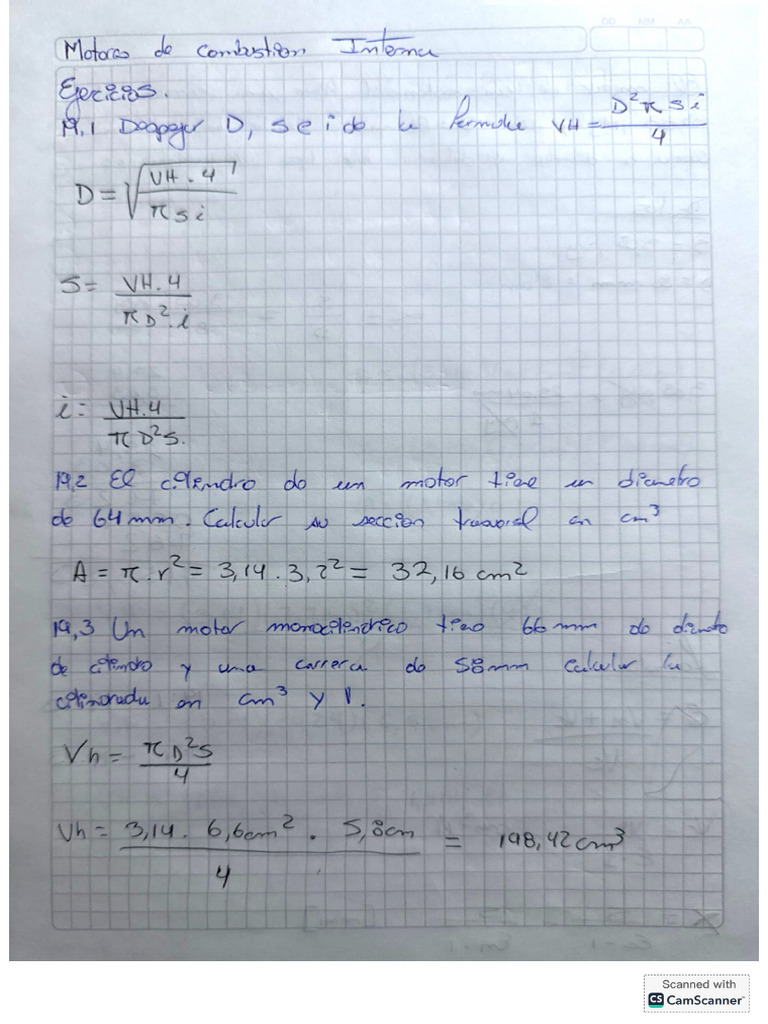 DD MM AA
Motores de Combustion Interna
Ejercicios.
19.1 Despejar D, s e i de la formula VH = D² π s i / 4
D = √ VH . 4 / π s i
S = VH. 4 / π D² . i
i = VH. 4 / π D² s.
19,2 El cilindro de un motor tiene un diametro
de 64 mm. Calcular su seccion en cm³
A = π . r² = 3,14 . 3,2² = 32,16 cm²
19,3 Un motor monocilindrico 66 mm de
de cilindro y una carrera de 58mm calcular la
en cm³ y l.
Vh = π D² s / 4
Vh = 3,14 . 6,6cm² . 5,8cm / 4 = 198,42 cm³
Scanned with
CS CamScanner